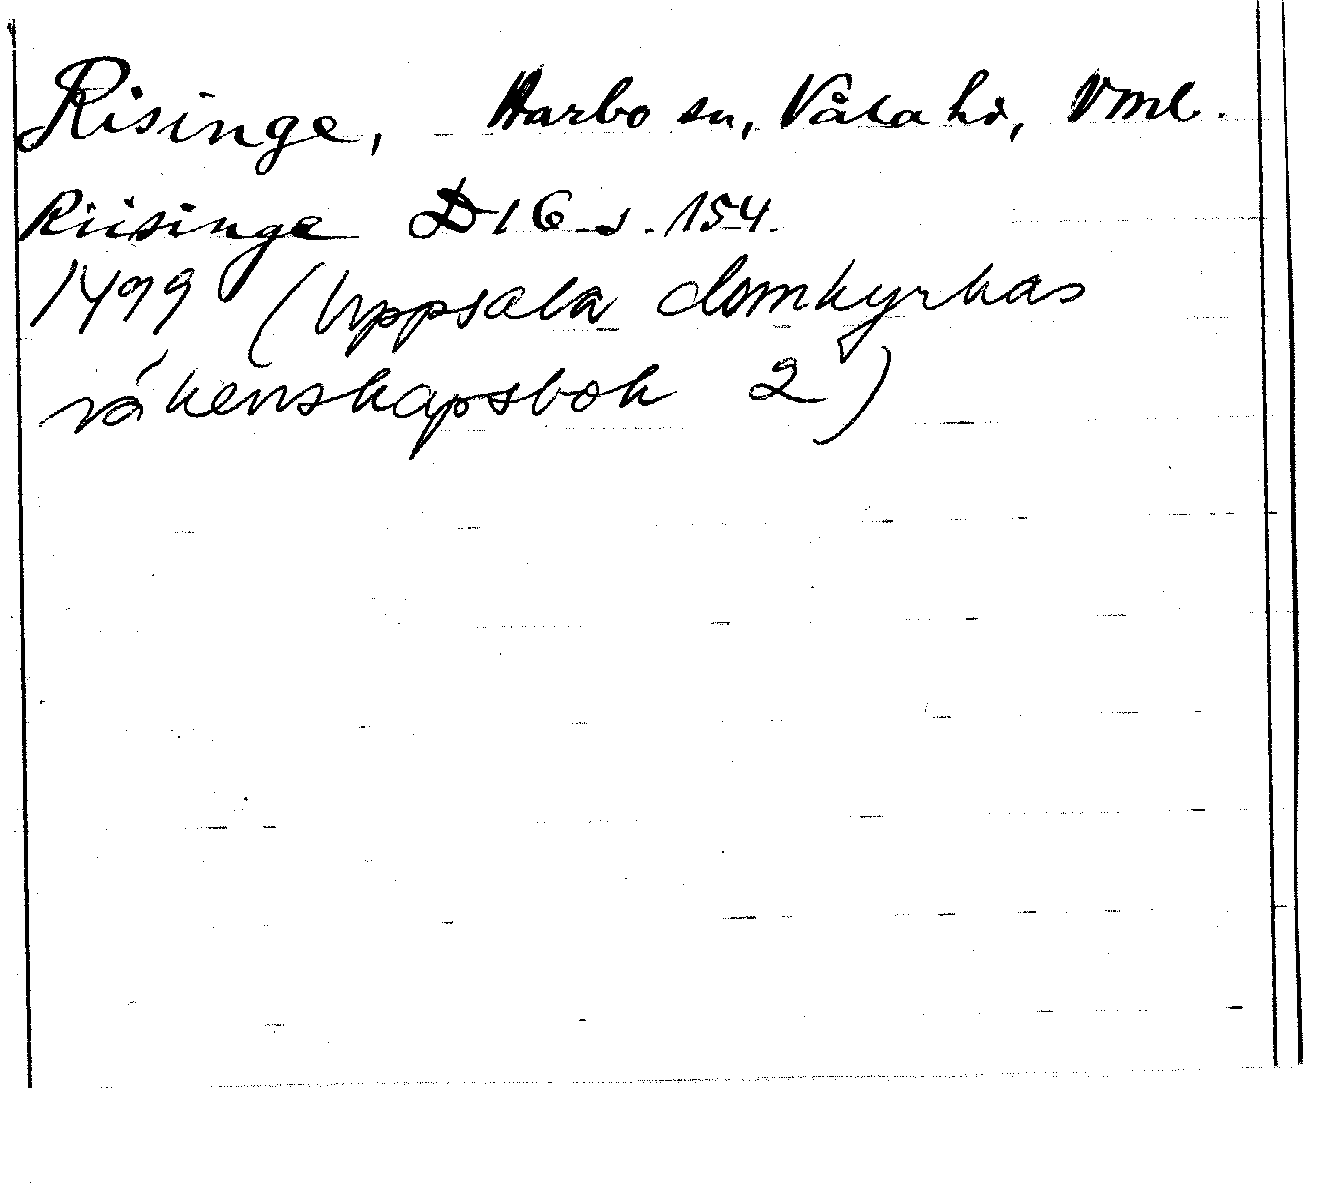 Risinge, Harbo sn, Våla hd, Vml.
Riisinge D 16 s. 154.
1499 (Uppsala domkyrkas
räkenskapsbok 2)